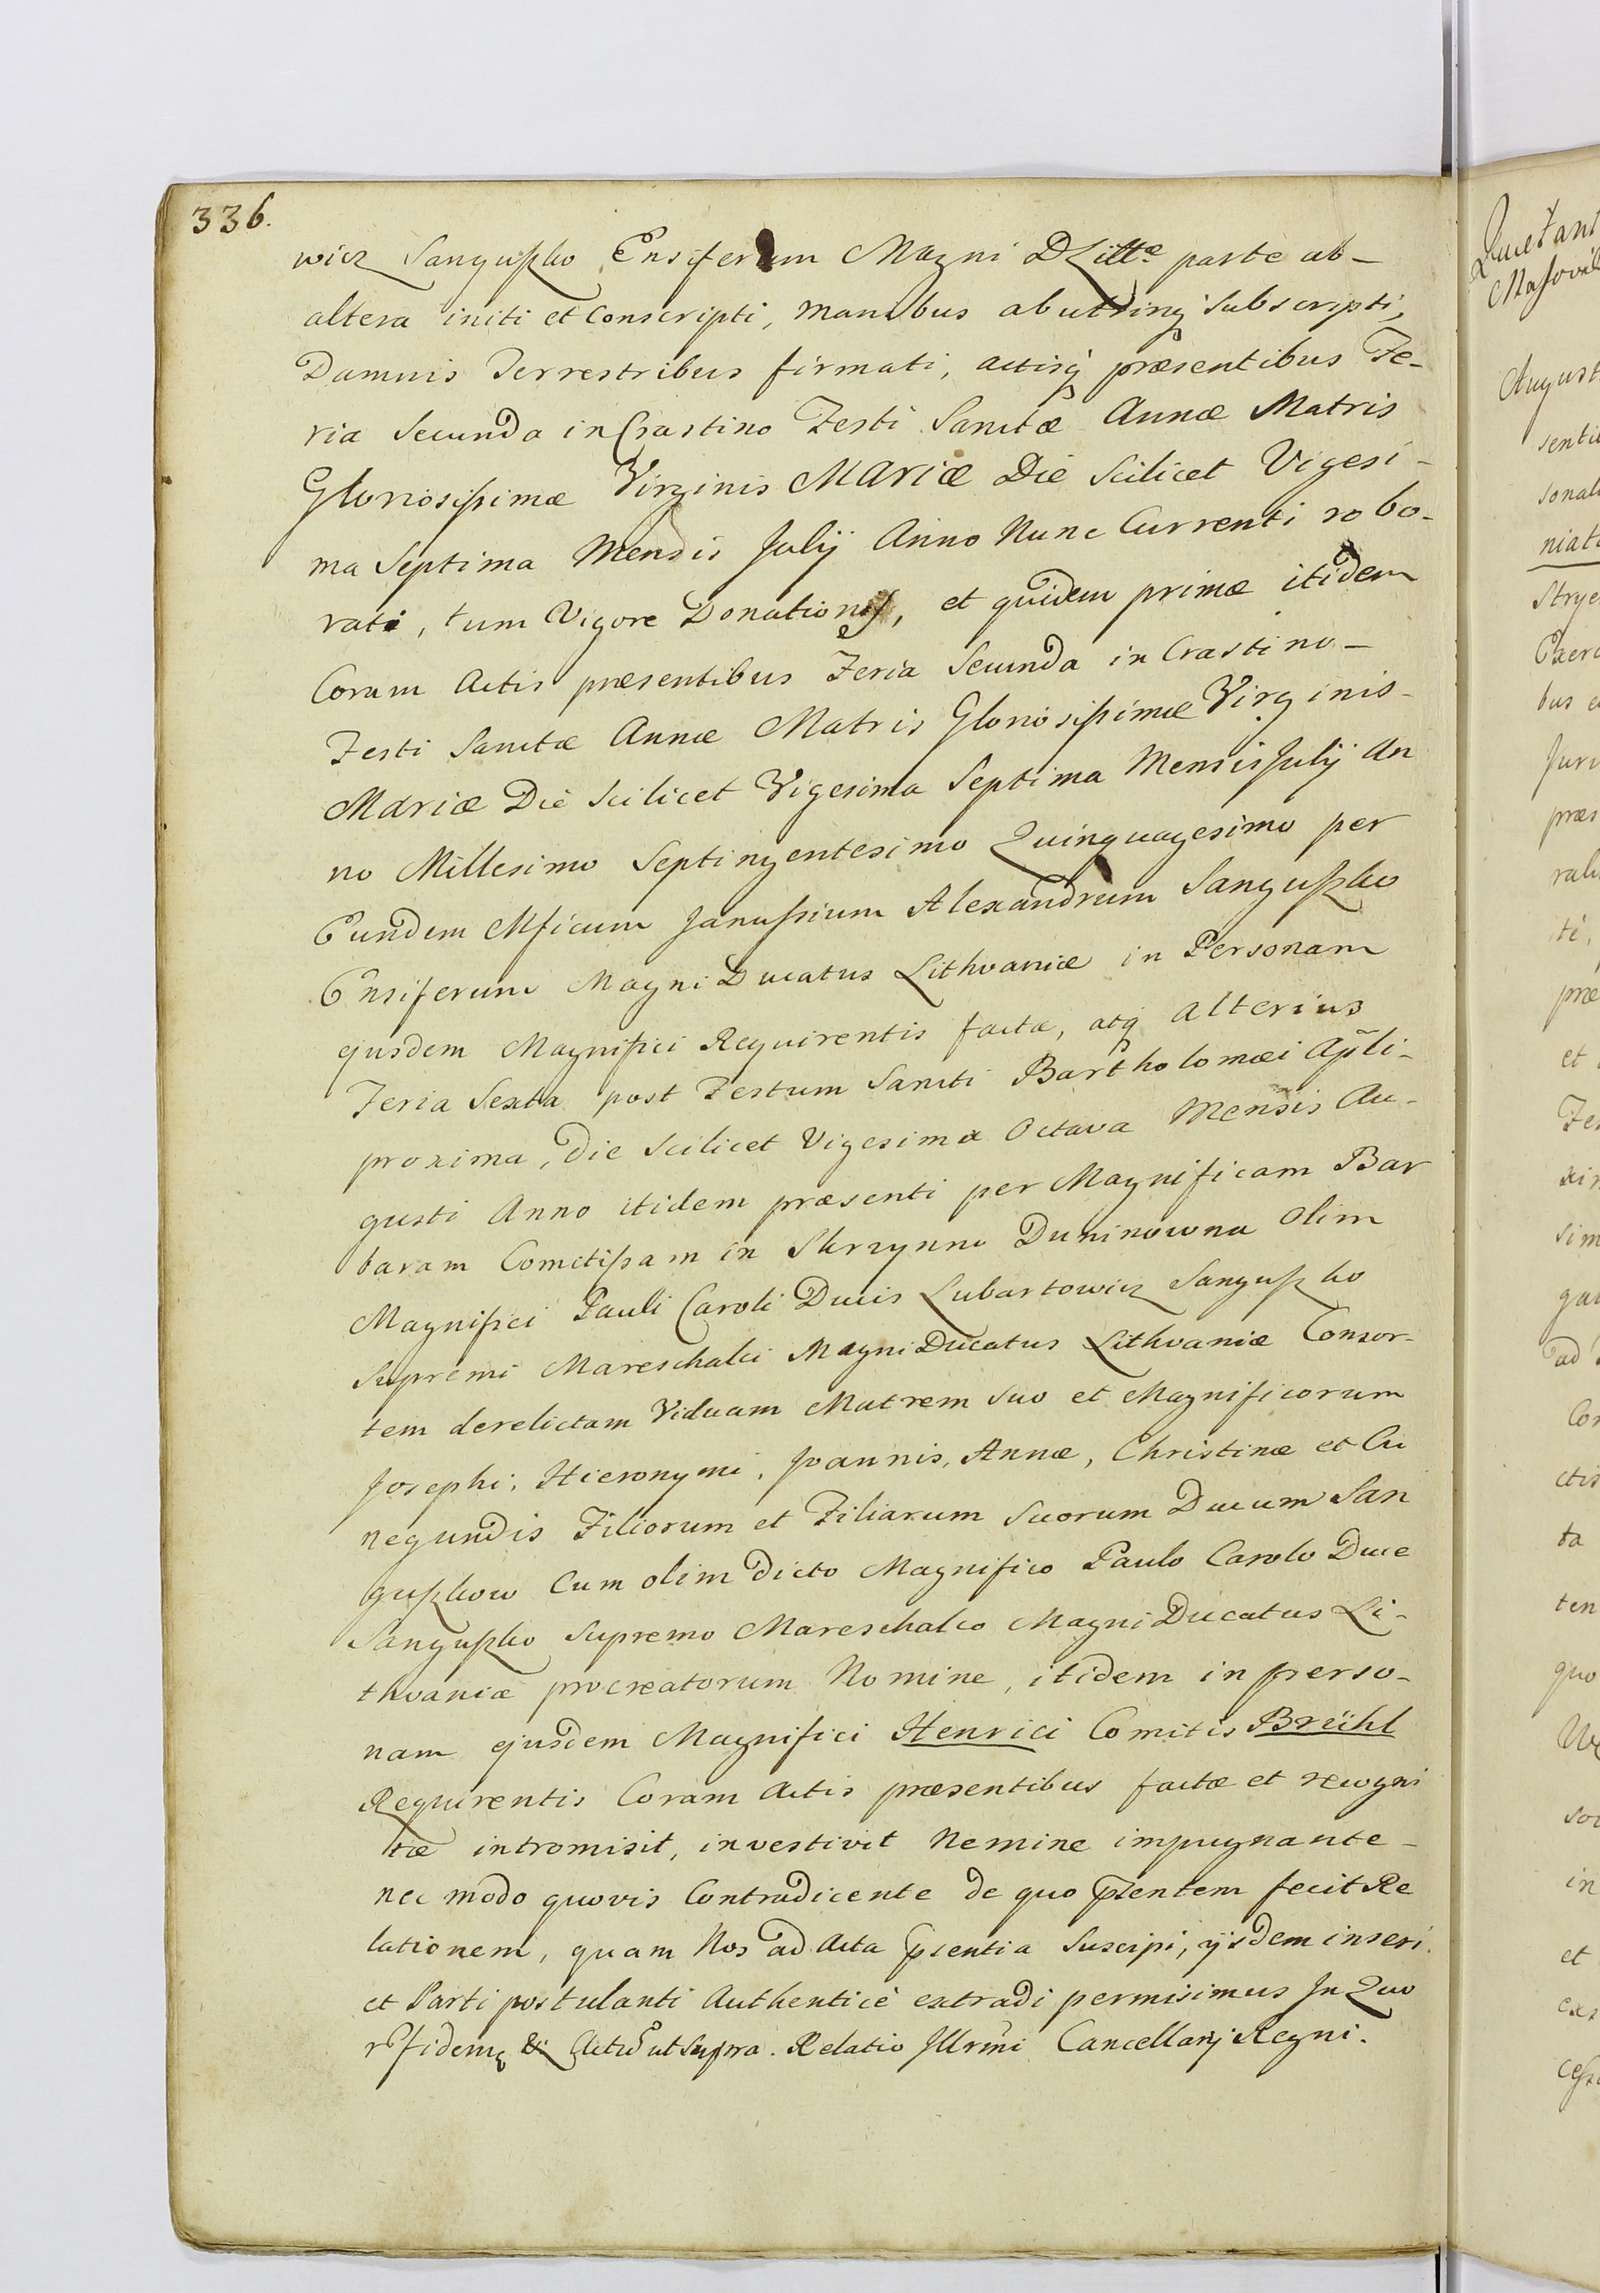 336.
wicz Sanguszko Ensiferum Magni D Litt̃æ parte ab-
altera initi et Conscripti, manibus ab utrinq́ subscripti,
Damnis Terrestribus firmati, actisq́ præsentibus Fe-
ria Secunda in Crastino Festi Sanctæ Annæ Matris
Gloriosissimæ Virginis MARIÆ Die Scilicet Vigesi-
ma Septima Mensis Julij Anno Nunc Currenti robo-
rati, tum Vigore Donationis, et quidem primæ itidem
Coram Actis præsentibus Feria Secunda in Crastino-
Festi Sanctæ Annæ Matris Gloriosissimæ Virginis-
Mariæ Die Scilicet Vigesima Septima Mensis Julij An
no Millesimo Septingentesimo Quinquagesimo per
Eundem Mficum Janussium Alexandrum Sanguszko
Ensiferum Magni Ducatus Lithvaniæ in Personam
ejusdem Magnifici Requirentis factæ, atq́ alterius
Feria Sexta post Festum Sancti Bartholomæi Ap̃li-
proxima, Die Scilicet Vigesima Octava Mensis Au-
gusti Anno itidem præsenti per Magnificam Bar
baram Comitissam in Skrzynno Duninowna Olim
Magnifici Pauli Caroli Ducis Lubartowicz Sanguszko
Supremi Mareschalci Magni Ducatus Lithvaniæ Consor-
tem derelictam Viduam Matrem Suo et Magnificorum
Josephi, Hieronymi, Joannis, Annæ, Christinæ et Cu
negundis Filiorum et Filiarum Suorum Ducum San
guszkow Cum olim dicto Magnifico Paulo Carolo Duce
Sanguszko Supremo Mareschalco Magni Ducatus Li-
thvaniæ procreatorum Nomine, itidem in perso-
nam ejusdem Magnifici Henrici Comitis Breühl
Requirentis Coram Actis præsentibus factæ et recogni
tæ intromisit, investivit Nemine impugnante-
nec modo quovis Contradicente de quo p̃sentem fecit Re
lationem, quam Nos ad Acta p̃sentia Suscipi, ijsdem inseri
et Parti postulanti Authenticè extradi permisimus In Quo
r̃ fidem & Actũ ut supra. Relatio Illrm̃i Cancellarij Regni.
August
senti
sonal
niat
bus
præs
et
ad
Con
ctis
ta
ten
quo
in
et